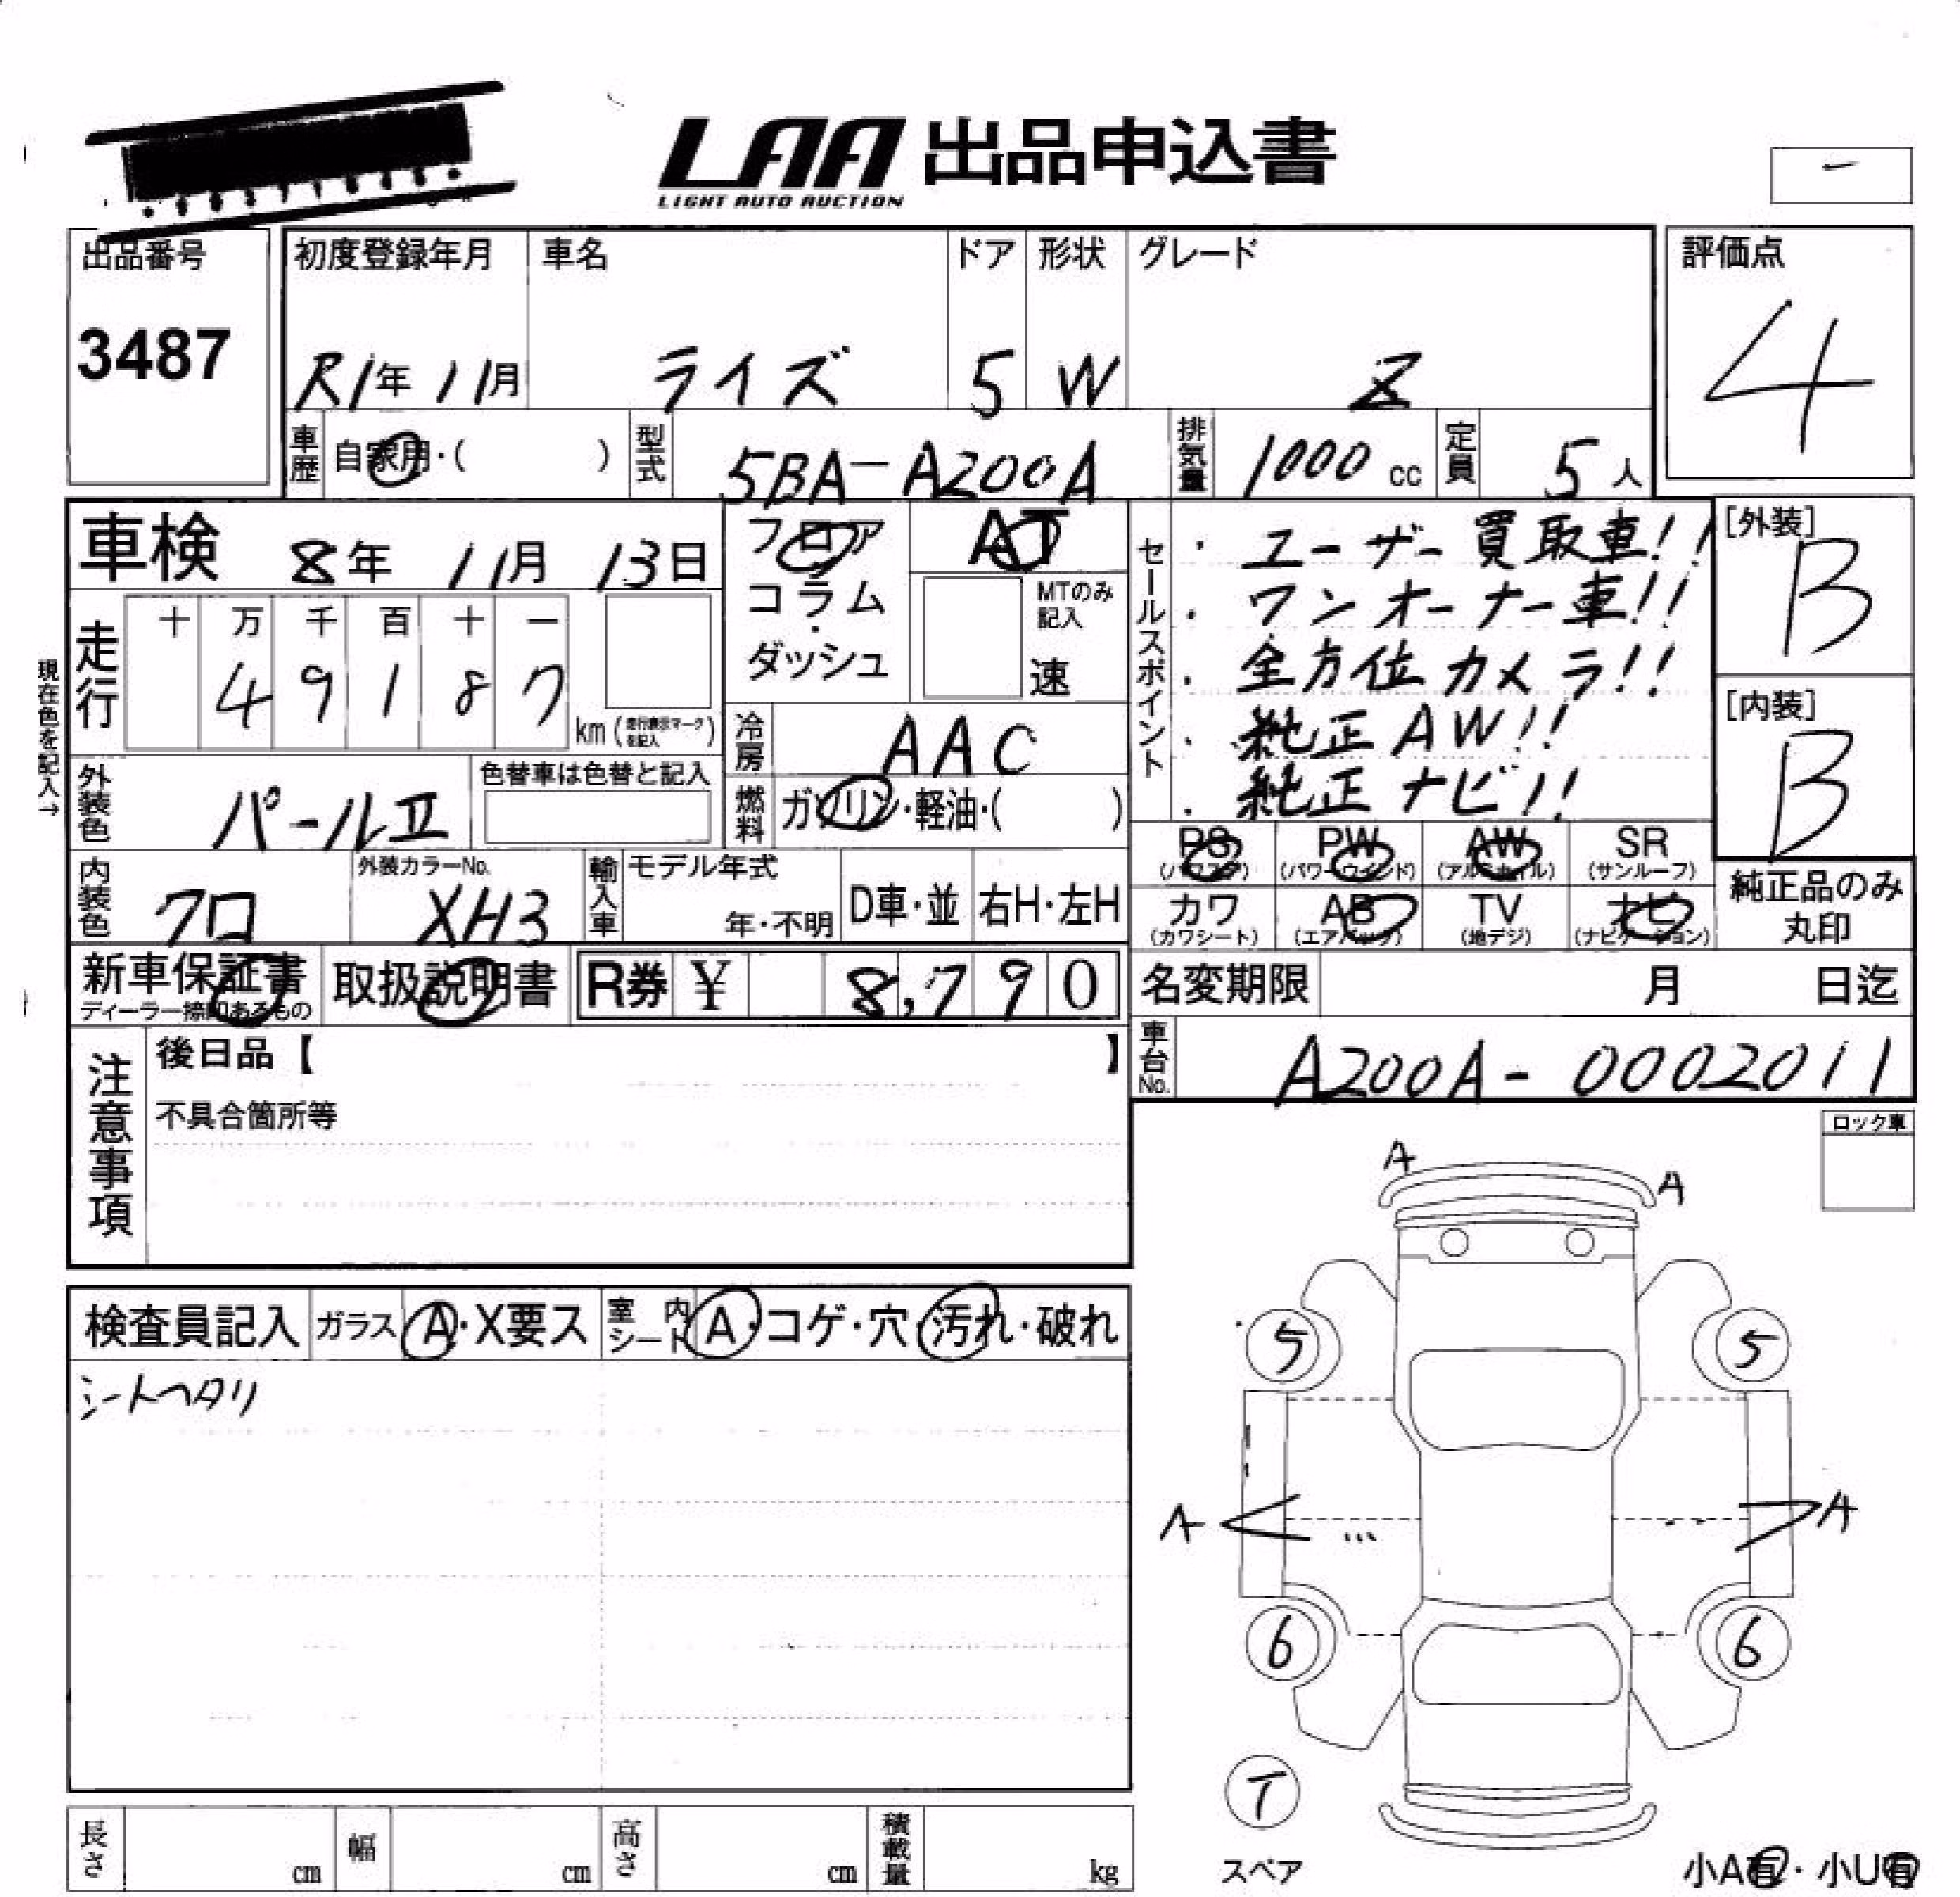 LAA 出品申込書
LIGHT AUTO AUCTION
-
出品番号
3487
初度登録年月
R1年 11月
車名
ライズ
ドア
5
形状
W
グレード
Z
評価点
4
車歴
自家用・( )
型式
5BA-A200A
排気量
1000 cc
定員
5人
車検 8年 11月 13日
フロア
コラム
・
ダッシュ
AT
MTのみ
記入
速
セールスポイント
・ユーザー買取車!!
・ワンオーナー車!!
・全方位カメラ!!
・純正AW!!
・純正ナビ!!
[外装]
B
[内装]
B
現在色を記入→
走行
十 万 千 百 十 一
4 9 1 8 7
km (走行表示マークを記入)
冷房
AAC
外装色
パールⅡ
色替車は色替と記入
燃料
ガソリン・軽油・( )
PS
(パワステ)
PW
(パワーウインド)
AW
(アルミホイル)
SR
(サンルーフ)
カワ
(カワシート)
AB
(エアバック)
TV
(地デジ)
ナビ
(ナビゲーション)
純正品のみ
丸印
内装色
クロ
外装カラーNo.
XH3
輸入車
モデル年式
年・不明
D車・並
右H・左H
新車保証書
ディーラー捺印あるもの
取扱説明書
R券 ¥ 8,790
名変期限 月 日迄
注意事項
後日品【 】
不具合箇所等
車台No.
A200A-0002011
ロック車
A
A
検査員記入
ガラス
A・X要ス
室内シート
A・コゲ・穴・汚れ・破れ
シートヘタリ
5
5
A
A
6
6
T
スペア
小A有・小U有
長さ cm
幅 cm
高さ cm
積載量 kg